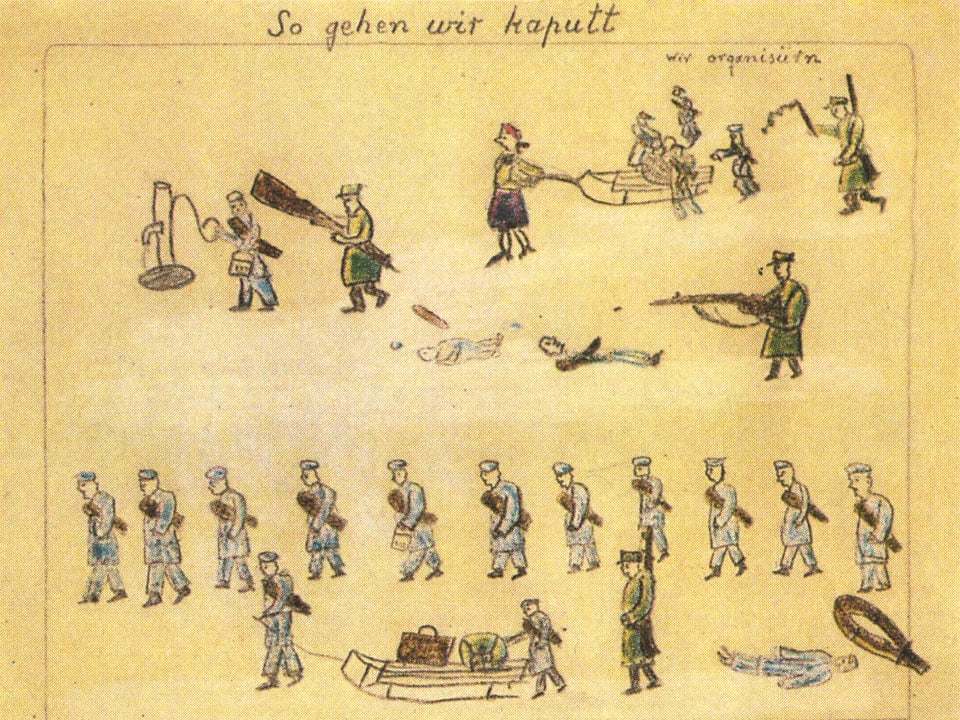 So gehen wir kaputt
wir organisiern